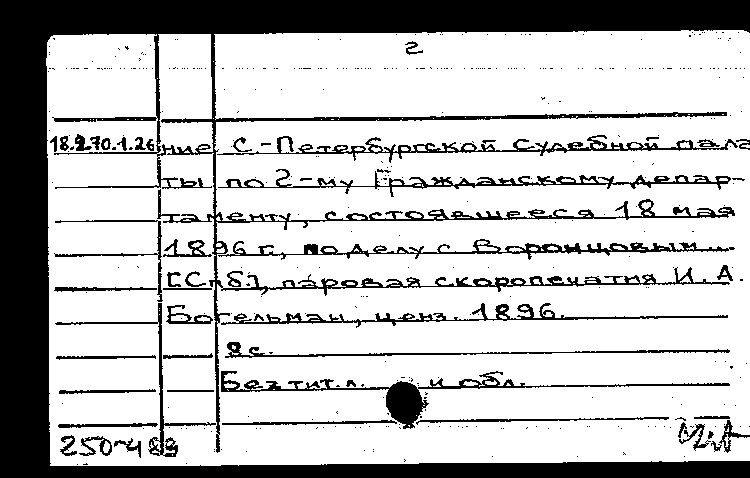 2
18.270.1.26 ние С.-Петербургской судебной пала
ты по 2-му Гражданскому депар-
таменту, состоявшееся 18 мая
1896 г., по делу с Воронцовым...
[Спб.], паровая скоропечатня И. А.
Богельман, ценз. 1896.
8 с.
Без тит. л. и обл.
250-483